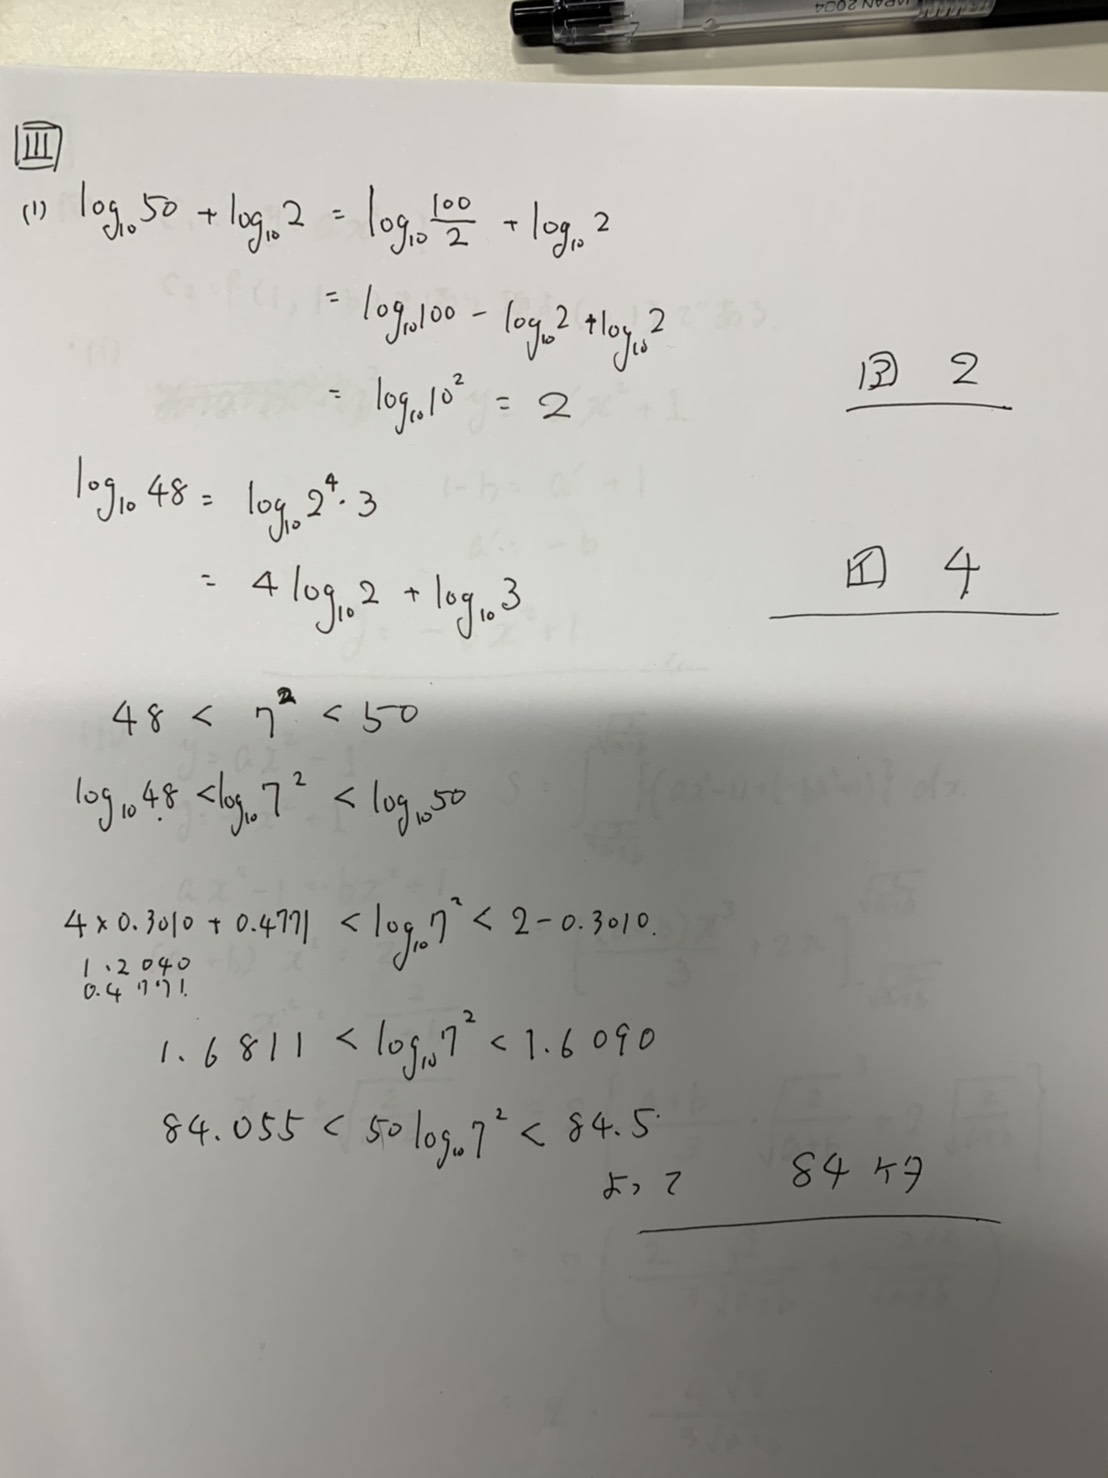 JAPAN 2004
III
(1) log₁₀50 + log₁₀2 = log₁₀ 100/2 + log₁₀2
= log₁₀100 - log₁₀2 + log₁₀2
= log₁₀10² = 2
ア 2
log₁₀48 = log₁₀2⁴・3
= 4log₁₀2 + log₁₀3
イ 4
48 < 7² < 50
log₁₀48 < log₁₀7² < log₁₀50
4×0.3010 + 0.4771 < log₁₀7² < 2-0.3010.
1.2040
0.4771.
1.6811 < log₁₀7² < 1.6090
84.055 < 50log₁₀7² < 84.5
よって 84ケタ